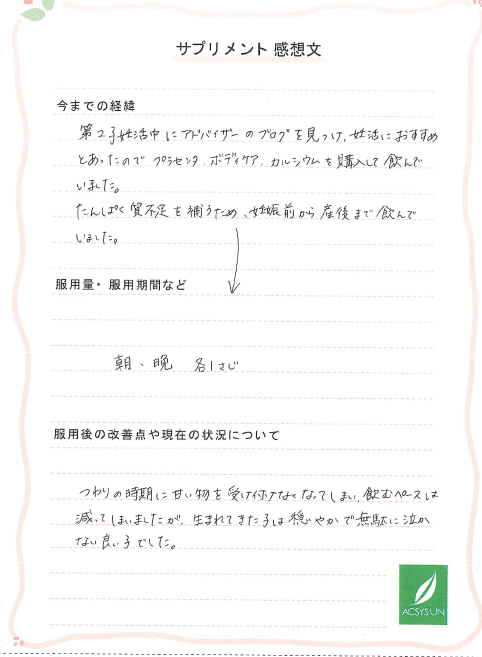 サプリメント 感想文
今までの経緯
第2子妊活中にアドバイザーのブログを見つけ、妊活におすすめ
とあったので プラセンタ、ボディケア、カルシウムを購入して飲んで
いました。
たんぱく質不足を補うため、妊娠前から産後まで飲んで
いました。
服用量・服用期間など
朝、晩 各1さじ
服用後の改善点や現在の状況について
つわりの時期に甘い物を受け付けなくなってしまい、飲むペースは
減ってしまいましたが、生まれてきた子は穏やかで無駄に泣か
ない良い子でした。
ACSYSUN